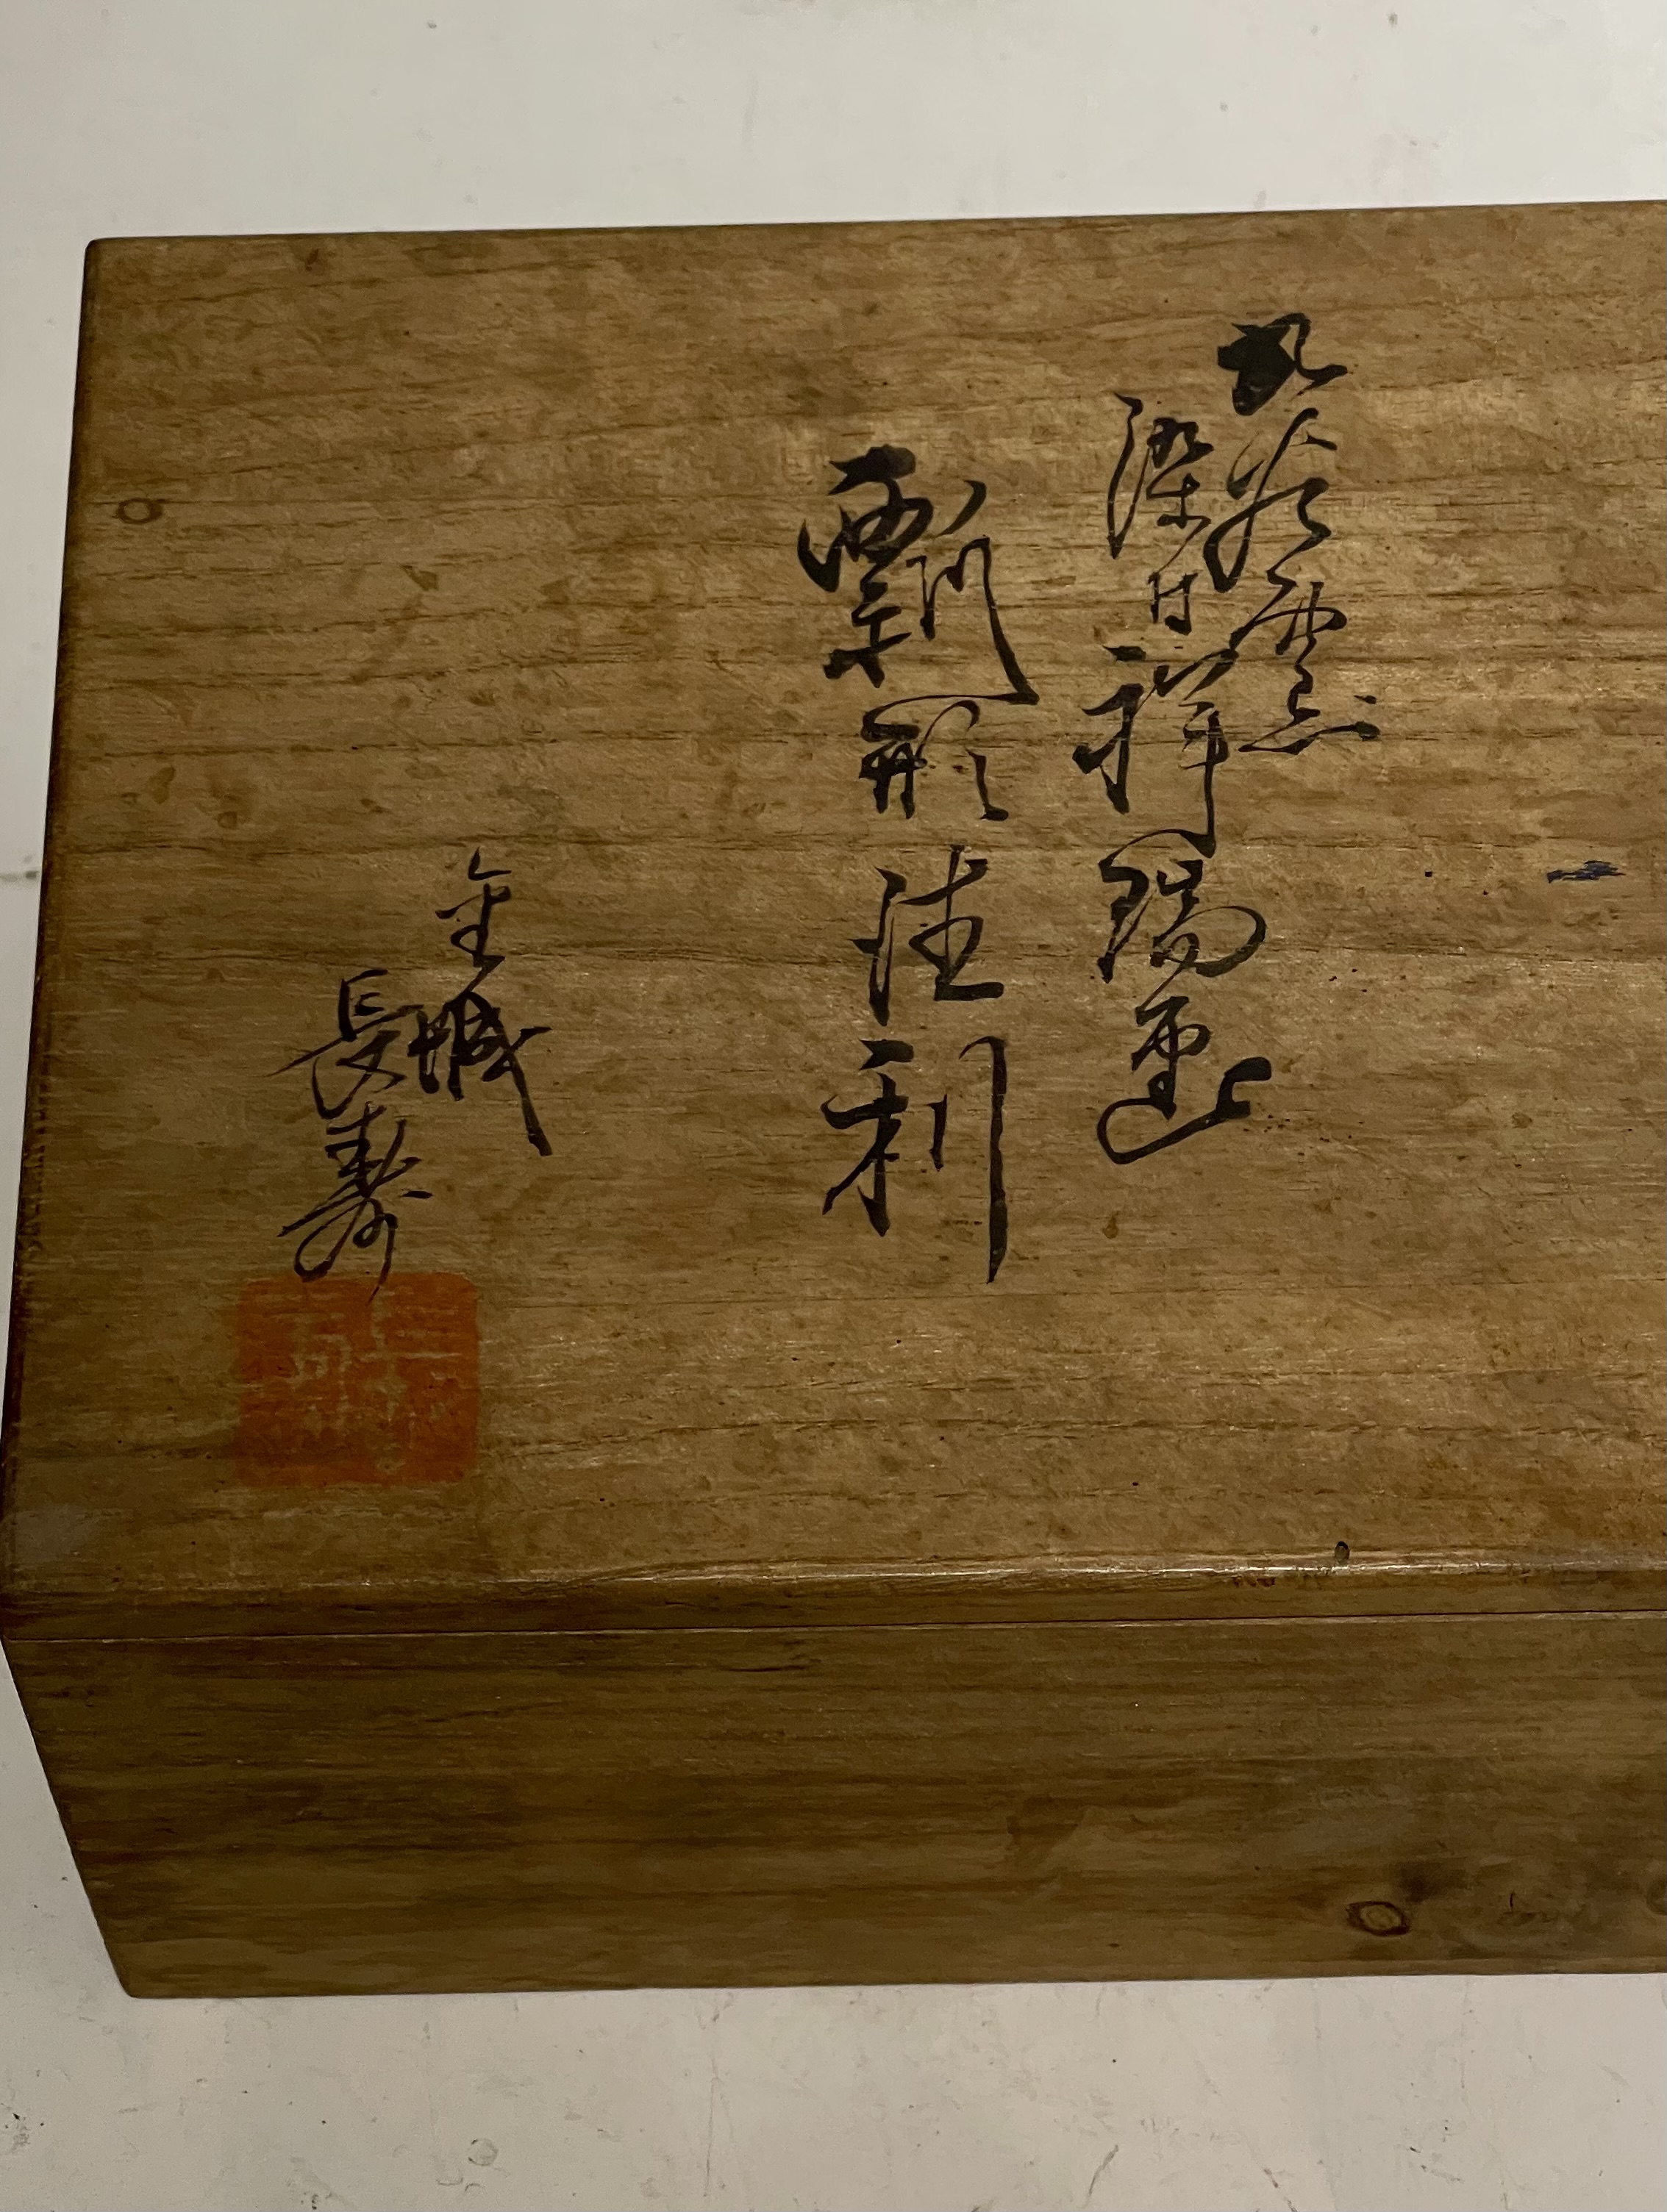 九谷窯
染付祥瑞画
瓢形徳利
金城
長寿